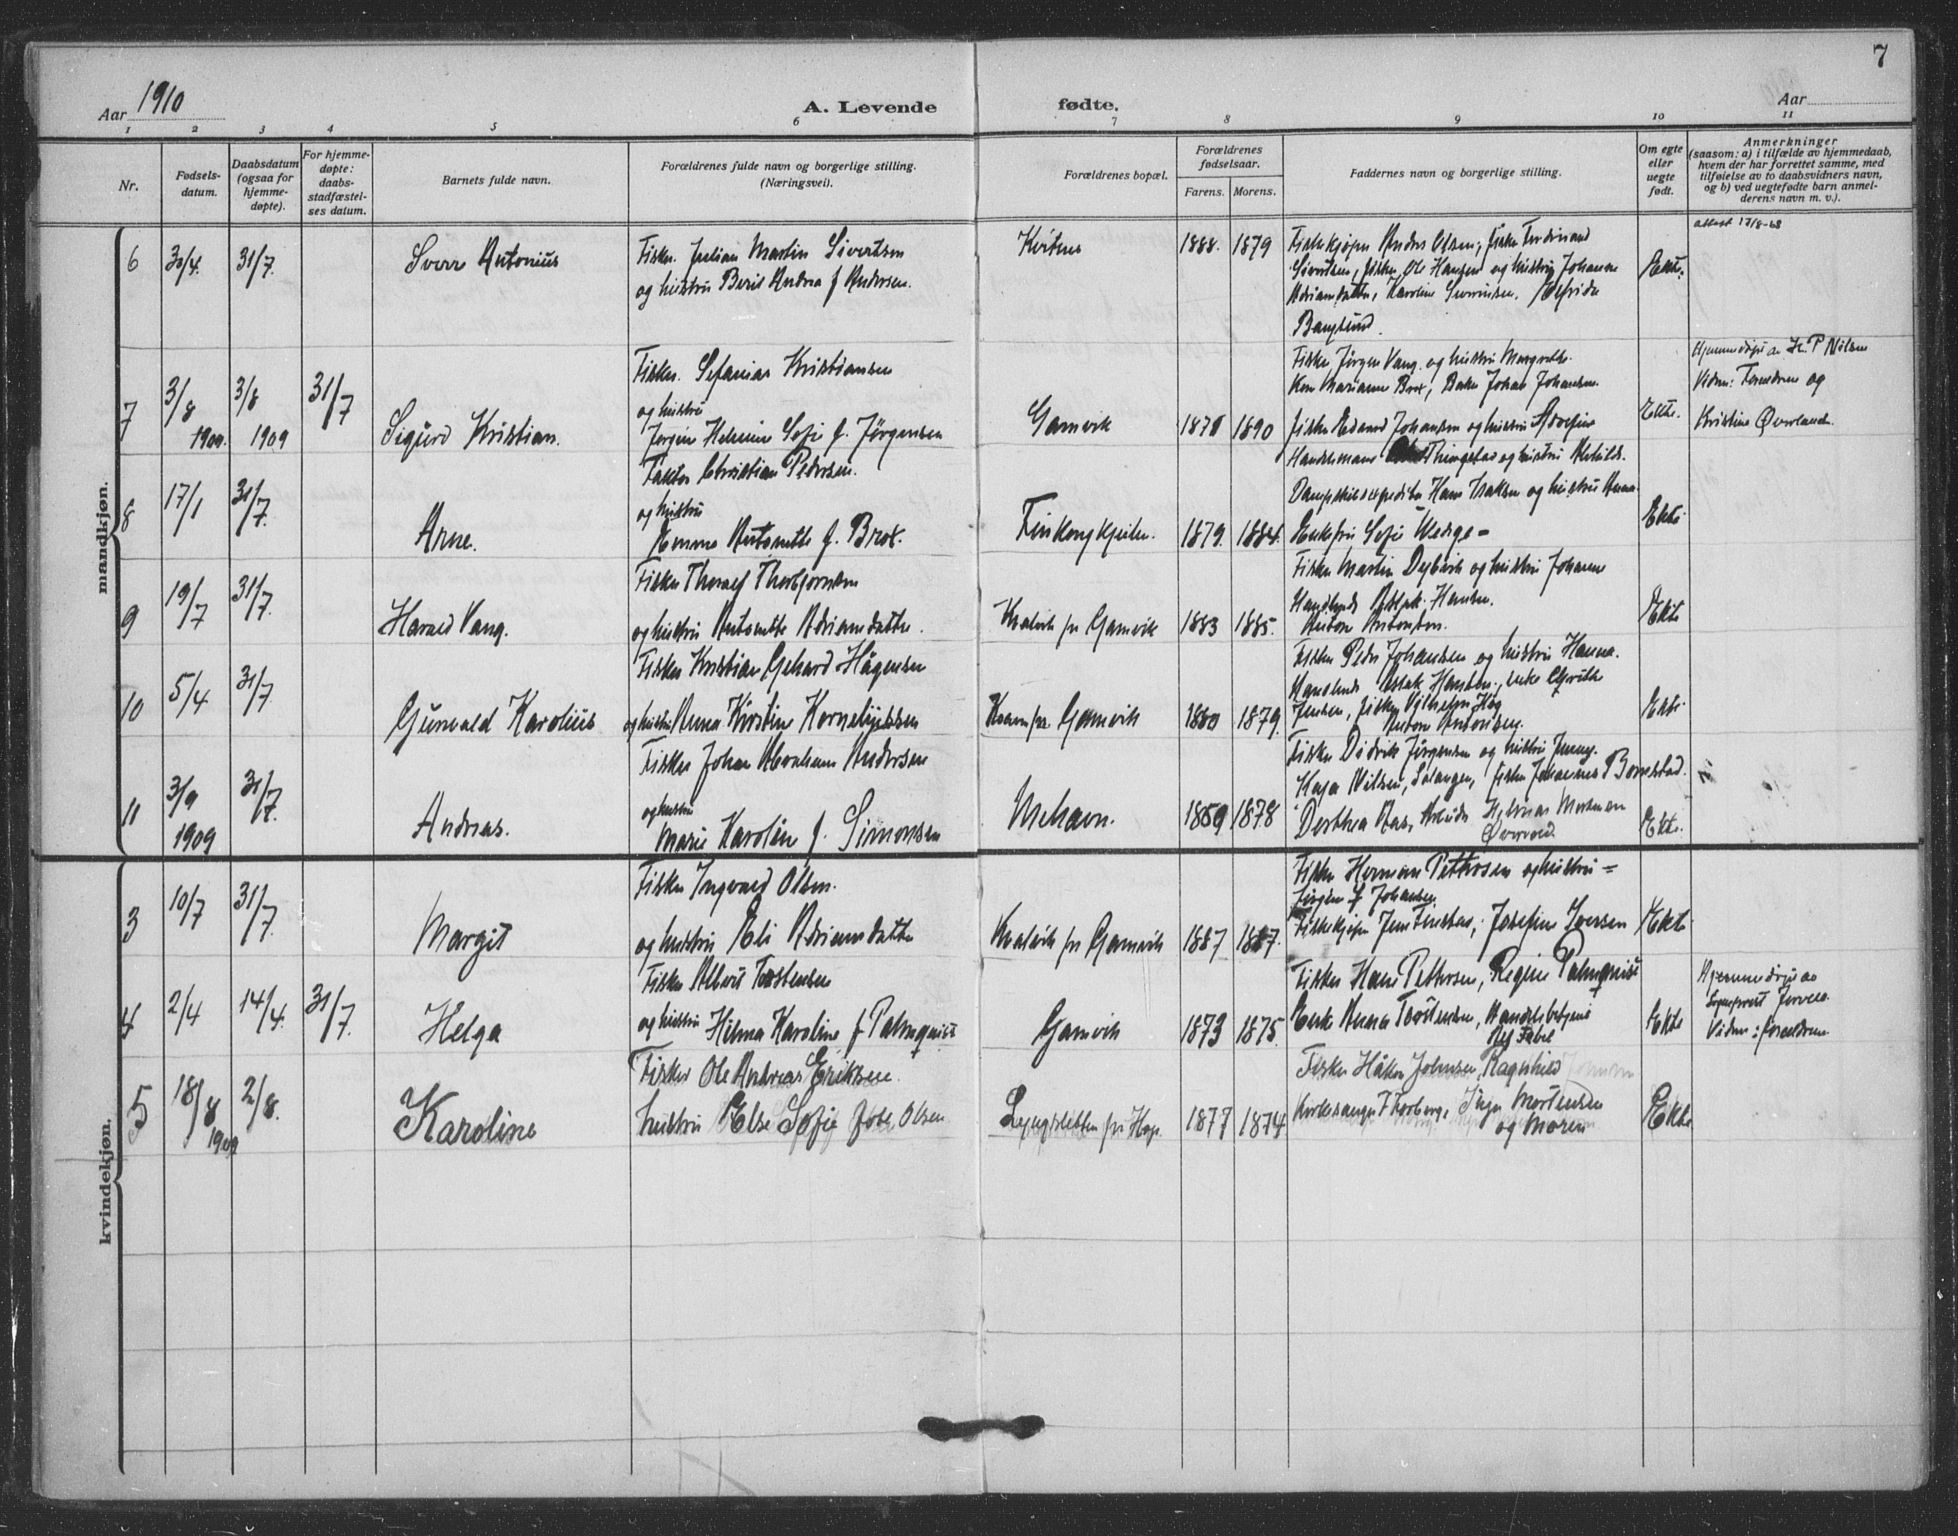 7
Aar 1910
A. Levende fødte.
Aar
1 2 3 4 5 6 7 8 9 10 11
Nr.
Fødsels-
datum.
Daabsdatum
(ogsaa for
hjemme-
døpte).
For hjemme-
døpte:
daabs-
stadfæstel-
ses datum.
Barnets fulde navn.
Forældrenes fulde navn og borgerlige stilling.
(Næringsvei).
Forældrenes bopæl.
Forældrenes
fødselsaar.
Farens. Morens.
Faddernes navn og borgerlige stilling.
Om egte
eller
uegte
født.
Anmerkninger
(saasom: a) i tilfælde av hjemmedaab,
hvem der har forrettet samme, med
tilføielse av to daabsvidners navn,
og b) ved uegtefødte barn anmel-
derens navn m. v.).
mandkjøn.
6 30/4. 31/7.
Sverr Antonius
Fisker. Julian Martin Sivertsen
og hustru Berit Andrea f Andersen.
1888. 1879
Fiskekjøper Anders Olsen, fisker Ferdinand
Sivertsen, fisker Ole Hansen og hustru Johanne
Adriansdatter, Karoline
Ekte.
attest 17/8-68
7 3/8 1909. 3/8 1909 31/7
Sigurd Kristian.
Fisker. Sefanias Kristiansen
og hustru
Jørgine Helmine Sofie f. Jørgensen
Gamvik
1871 1890
Fisker Jørgen Vang og hustru Margrethe.
Kone Marianne Brox, Johan Johansen.
fisker Edvard Johansen og hustru Adolfine
Ekte.
Hjemmedøpt av H. P Nilsen
Vidner: Forældrene og
Kristine Øverland.
8 17/1 31/7.
Arne.
Faktor Christian Pedersen.
og hustru
Emma Antonette f. Brox.
Finkongkjeilen.
1879. 1884.
Handelsmand Thingstad og hustru Mathilde.
Dampskibsexpeditør Hans Isaksen og hustru Anna.
Enkefru Sofie Wedge
Ekte
9 19/7 31/7.
Harald Vang.
Fisker Thoralf Thorbjørnsen
og hustru Antonette Adriansdatter.
Kvalvik pr Gamvik
1883 1885.
Fisker Martin Dybvik og hustru Johanne
Hansen.
Anton Antonsen.
Ekte
10 5/4 31/7.
Gunvald Karolius
Fisker Kristian Gehard Hågensen
og hustru Anna Kirstine Korneliussen
pr. Gamvik
1880 1879.
Fisker Peder Johansen og hustru Hanna.
Jensen, fisker Vilhelm
Anton Antonsen.
Ekte
11 3/9 1909 31/7.
Andreas.
Fisker Johan Abraham Andersen
og hustru
Marie Karoline f. Simonsen
Mehavn.
1859 1878
Fisker Didrik Jørgensen og hustru Jenny.
Kaja Nilsen, Salangen, fisker Johannes
Dorthea Aas, Hilmar Mortensen
Ekte.
kvindekjøn.
3 10/7 31/7.
Margit
Fisker Ingvald Olsen.
og hustru Eli Adriansdatter
Kvalvik pr Gamvik
1887 1887.
Fisker Herman Pettersen og hustru =
Jørgine f Johansen.
Fiskekjøper Jens Finstad, Josefine Iversen
Ekte
4 2/4 14/4. 31/7.
Helga
Fisker Albert Torstensen
og hustru Hilma Karoline f Palmquist
Gamvik
1873 1875.
Fisker Hans Pettersen, Regine Palmquist
Enke Anna Torstensen, Handelsbetjent
Alf Fabel
Ekte
Hjemmedøpt av
Sogneprest
Vidner: forældrene
5 18/8 1909 2/8.
Karoline
Fisker Ole Andreas Eriksen.
hustru Else Sofie født Olsen
Lyngsletten pr Hop.
1877 1874
Fisker Håkon Johnsen, Ragnhild
Kirkesanger Thorberg, Inga Mortensen
og moren
Ekte